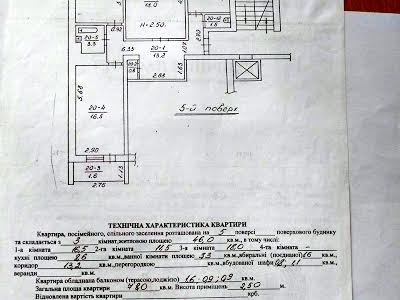 18.0
H=2.50
20-10
1.5
20-5
3.3
0.92
6.33
20-1
13.2
2.92
1.63
0.8
2.68
5.68
20-4
16.5
5-ой поверх
2.90
20-3
1.6
1.13
2.75
ТЕХНІЧНА ХАРАКТЕРИСТИКА КВАРТИРИ
Квартира, посімейного, спільного заселення розташована на 5 поверсі поверхового будинку
та складається з 3 кімнат, житловою площею 46,0 кв.м., в тому числі:
1-а кімната 16,5 2-га кімната 11,5 3-я кімната 18,0 4-та кімната -
кухні площею 8,6 кв.м., ванної кімнати площею 3,3 кв.м., вбиральні (поєднаної) 1,6 кв.м.
коридор 13,2 кв.м., перегородкою кв.м., вбудованої шафи 0,8, 1,1 кв.м.,
веранди кв.м.
Квартира обладнана балконом (терасою, лоджією) 1,6 0,9 0,9 кв.м.
Загальна площа квартири 78,0 кв.м. Висота приміщень 2,50 м.
Відновлена вартість квартири крб.